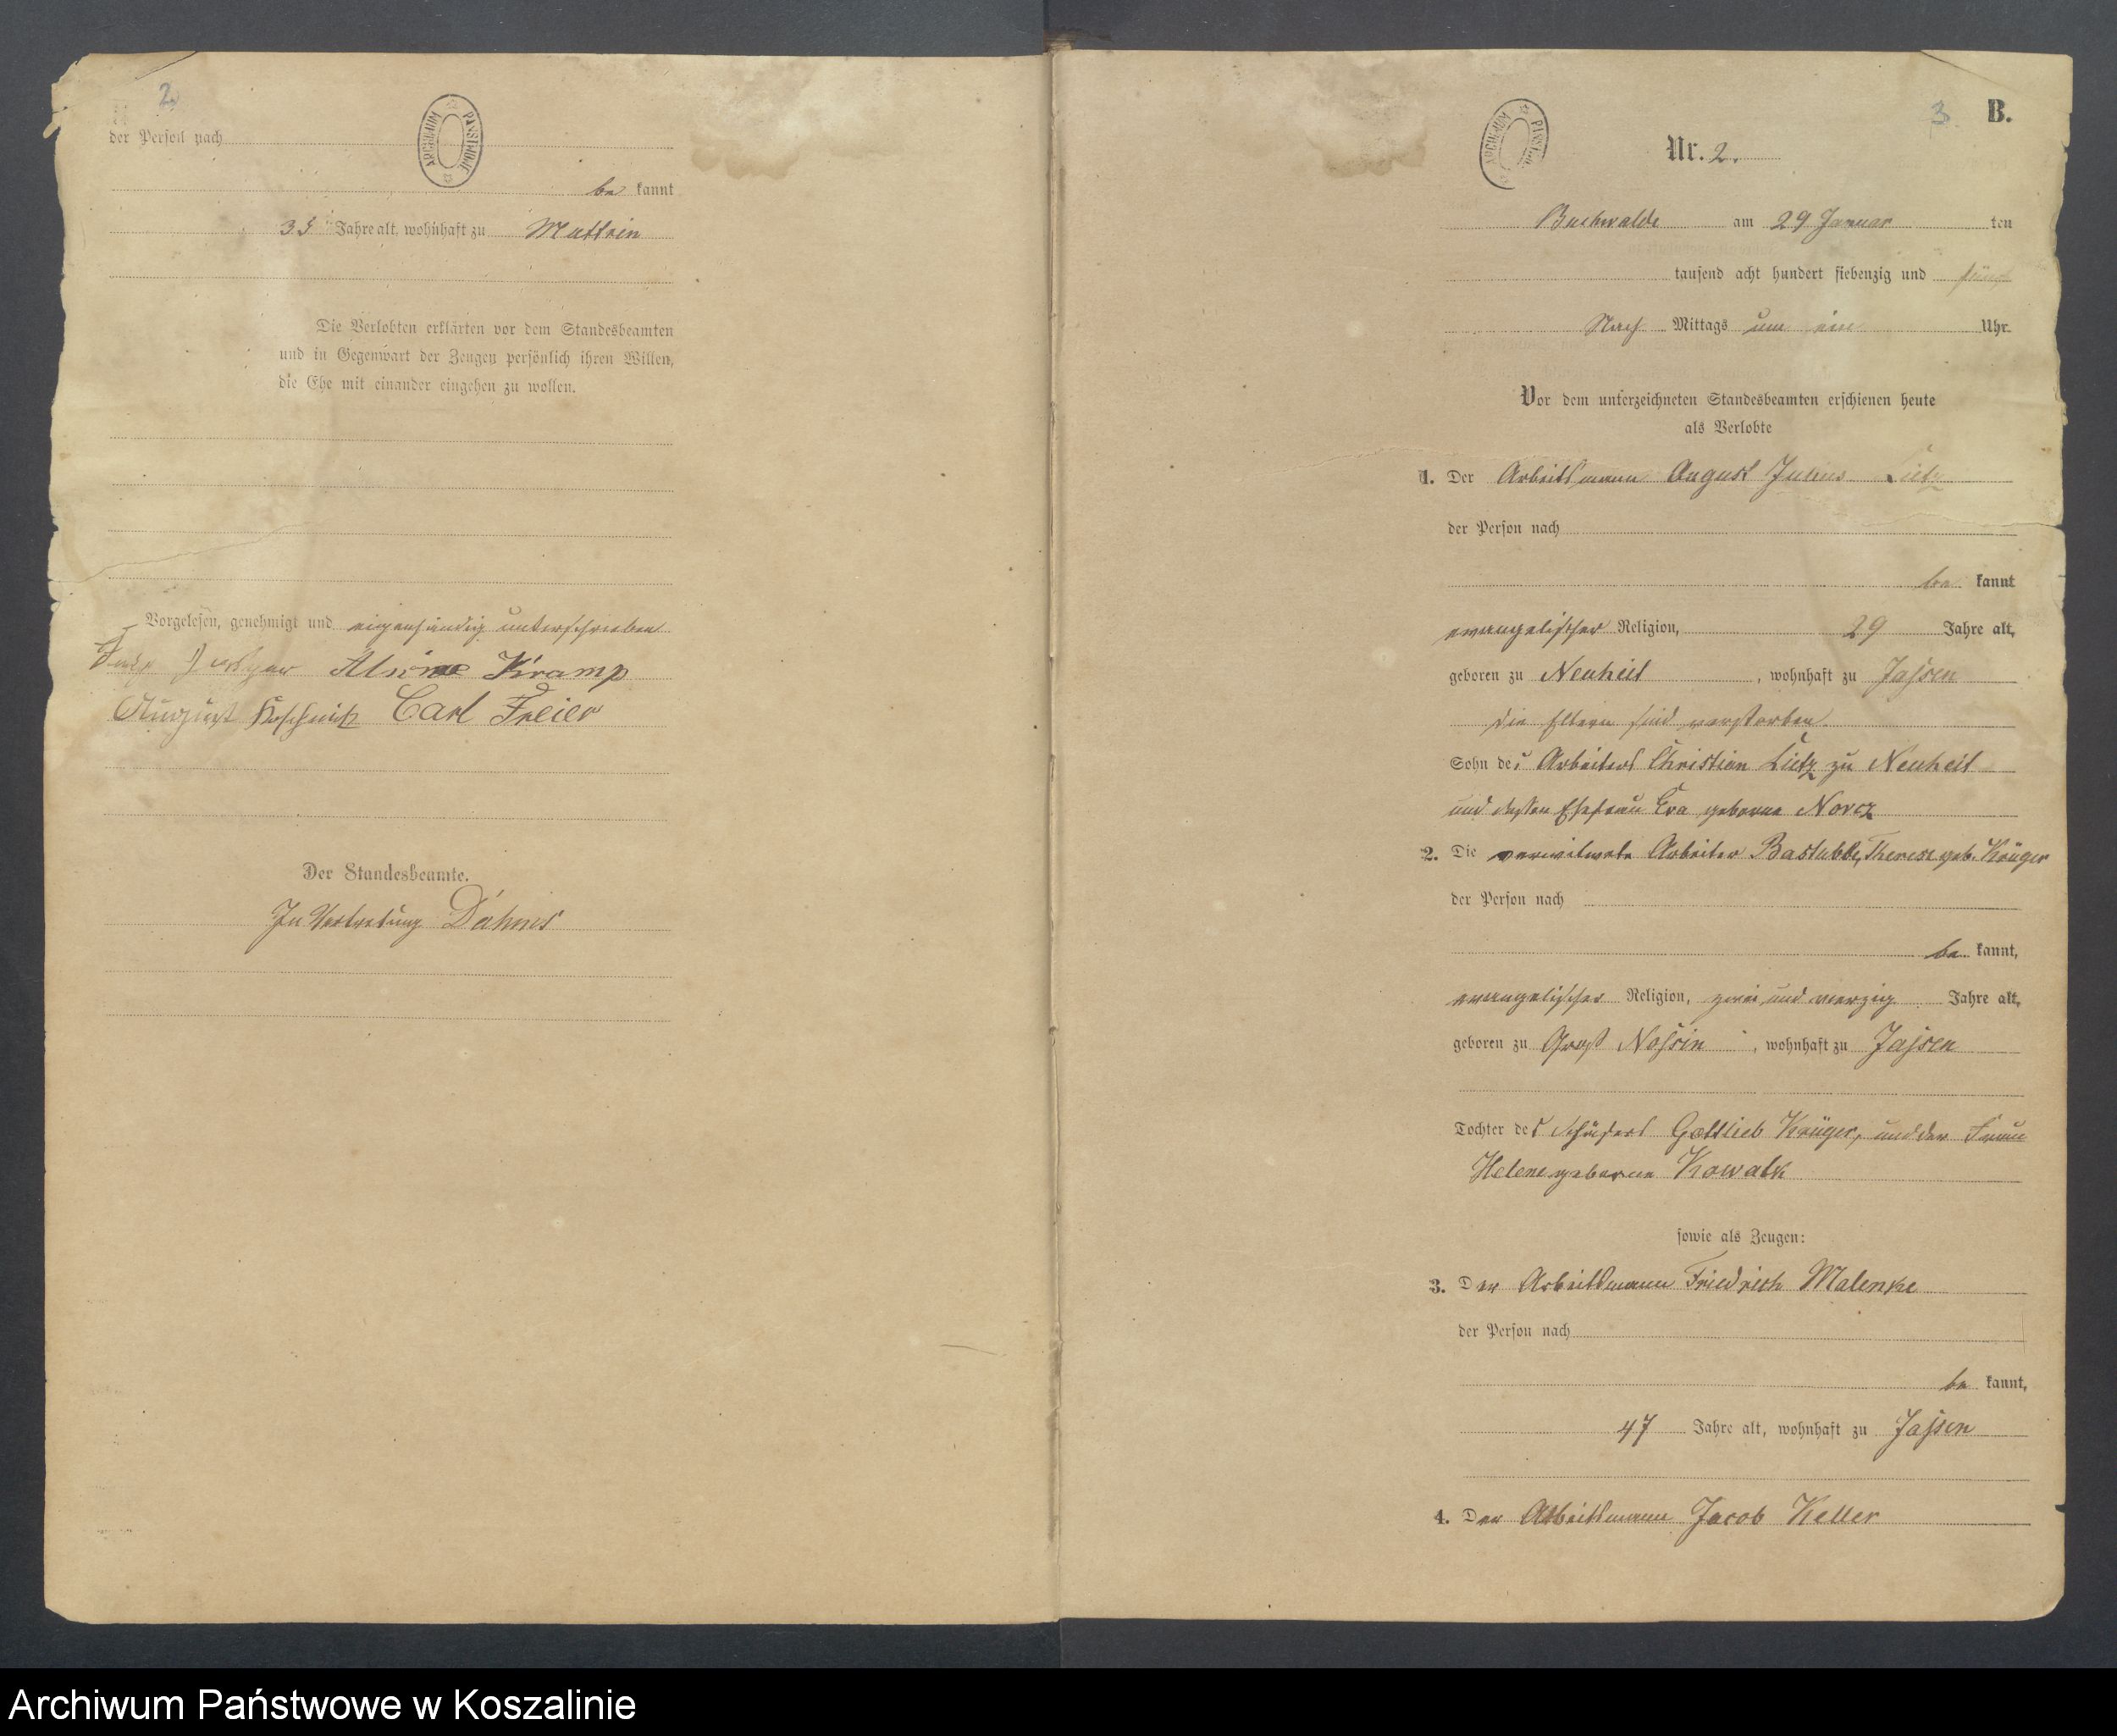 2
der Person nach
ARCHIWUM PAŃSTWOWE
be kannt
35 Jahre alt, wohnhaft zu Muttrin
Die Verlobten erklärten vor dem Standesbeamten
und in Gegenwart der Zeugen persönlich ihren Willen,
die Ehe mit einander eingehen zu wollen.
Vorgelesen, genehmigt und eigenhändig unterschrieben
Alwine Kramp
August Koschnick Carl Freier
Der Standesbeamte.
In Vertretung Dähnes
3 B.
ARCHIWUM
Nr. 2.
Buchwalde am 29 Januar ten
tausend acht hundert siebenzig und fünf
Nach Mittags um ein Uhr.
Vor dem unterzeichneten Standesbeamten erschienen heute
als Verlobte
1. Der Arbeitsmann August Julius Lietz
der Person nach
be kannt
evangelischer Religion, 29 Jahre alt,
geboren zu Neuheit, wohnhaft zu Jassen
die Eltern sind verstorben.
Sohn des Arbeiters Christian Lietz zu Neuheit
und dessen Ehefrau Eva geborne
2. Die verwitwete Arbeiter Bastubbe, Therese geb. Krüger
der Person nach
be kannt,
evangelischer Religion, zwei und vierzig Jahre alt,
geboren zu Groß Nossin, wohnhaft zu Jassen
Tochter des Schäfers Gottlieb Krüger, und der Frau
Helene geborne Kowalk
sowie als Zeugen:
3. Der Arbeitsmann Friedrich Malenke
der Person nach
be kannt,
47 Jahre alt, wohnhaft zu Jassen
4. Der Arbeitsmann Jacob Keller
Archiwum Państwowe w Koszalinie